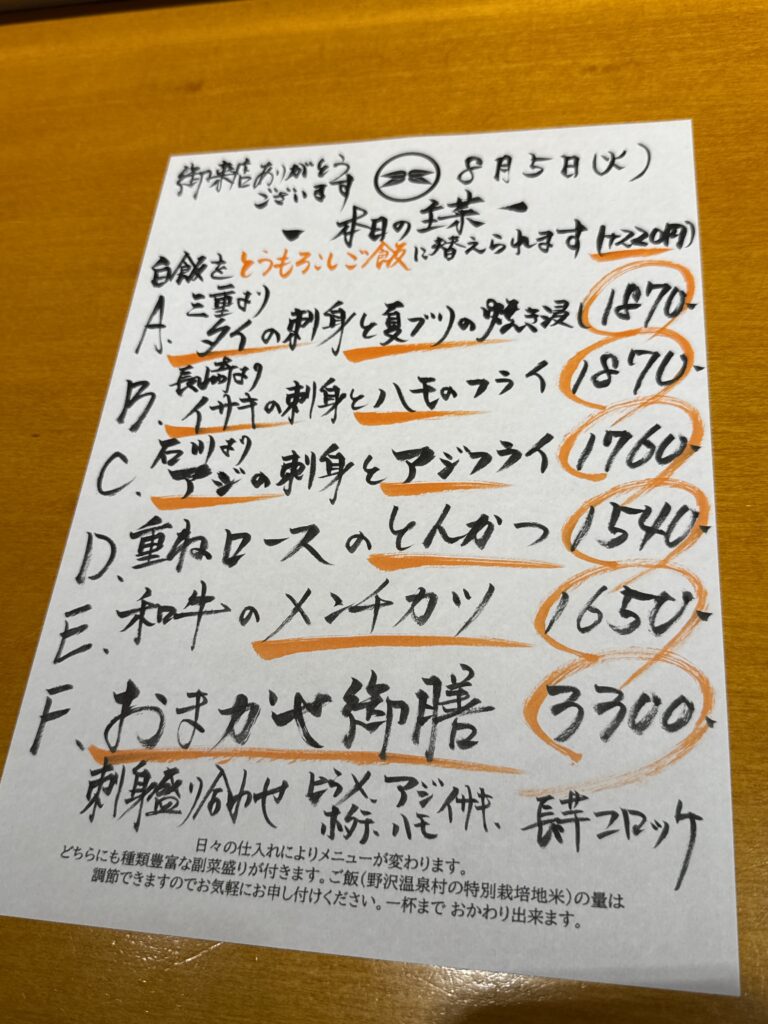 御来店ありがとう
ございます
8月5日(火)
本日の主菜
白飯をとうもろこしご飯に替えられます(+220円)
A. 三重より
タイの刺身と夏ブリの焼き浸し 1870-
B. 長崎より
イサキの刺身とハモのフライ 1870-
C. 石川より
アジの刺身とアジフライ 1760-
D. 重ねロースのとんかつ 1540-
E. 和牛のメンチカツ 1650-
F. おまかせ御膳 3300-
刺身盛り合わせ ヒラメ、アジ、イサキ、
ホタテ、ハモ
長芋コロッケ
日々の仕入れによりメニューが変わります。
どちらにも種類豊富な副菜盛りが付きます。ご飯(野沢温泉村の特別栽培地米)の量は
調節できますのでお気軽にお申し付けください。一杯まで おかわり出来ます。